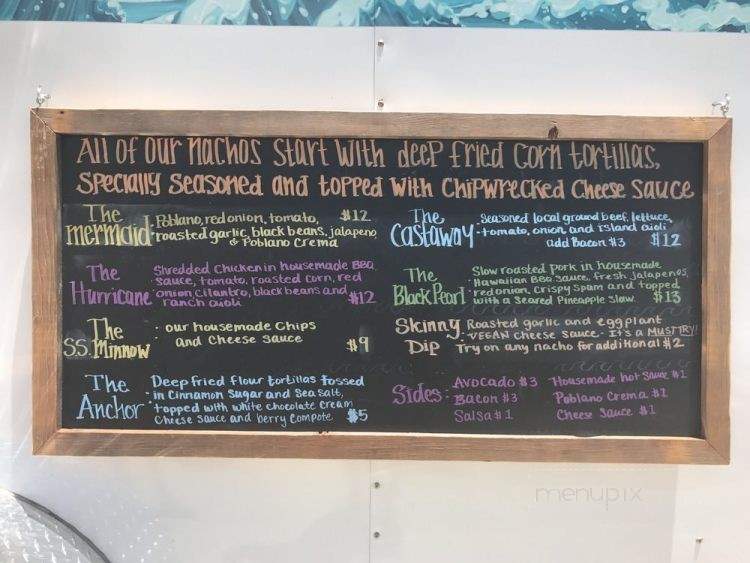 All of our nachos start with deep fried corn tortillas,
Specially Seasoned and topped with Chipwrecked Cheese Sauce
The Mermaid
· Poblano, red onion, tomato, $12
roasted garlic, black beans, jalapeno,
& Poblano Crema
The Hurricane
· Shredded Chicken in housemade BBQ
Sauce, tomato, roasted corn, red
onion, cilantro, black beans and
ranch aioli $12
The S.S. Minnow
· our housemade chips
and cheese sauce $9
The Anchor
· Deep fried flour tortillas tossed
in Cinnamon Sugar and Sea Salt,
topped with white chocolate cream
cheese sauce and berry compote $5
The Castaway
· Seasoned local ground beef, lettuce,
tomato, onion and island aioli
add bacon $3 $12
The Black Pearl
· Slow roasted Pork in housemade
Hawaiian BBQ sauce, fresh jalapenos,
red onion, crispy spam and topped
with a seared Pineapple slaw $13
Skinny Dip
· Roasted garlic and eggplant
VEGAN cheese sauce. It's a MUST TRY!
Try on any nacho for additional $2
Sides:
Avocado $3 Housemade hot sauce $1
Bacon $3 Poblano Crema $1
Salsa $1 Cheese Sauce $1
menupix